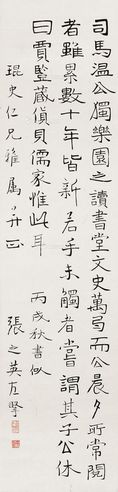 司馬溫公獨樂園之讀書堂文史萬卷而公晨夕所常閱
者雖累數十年皆新若手未觸者嘗謂其子公休
曰賈豎藏貨貝儒家惟此耳
丙戌秋書似
琨史仁兄雅属并正
張之英左筆